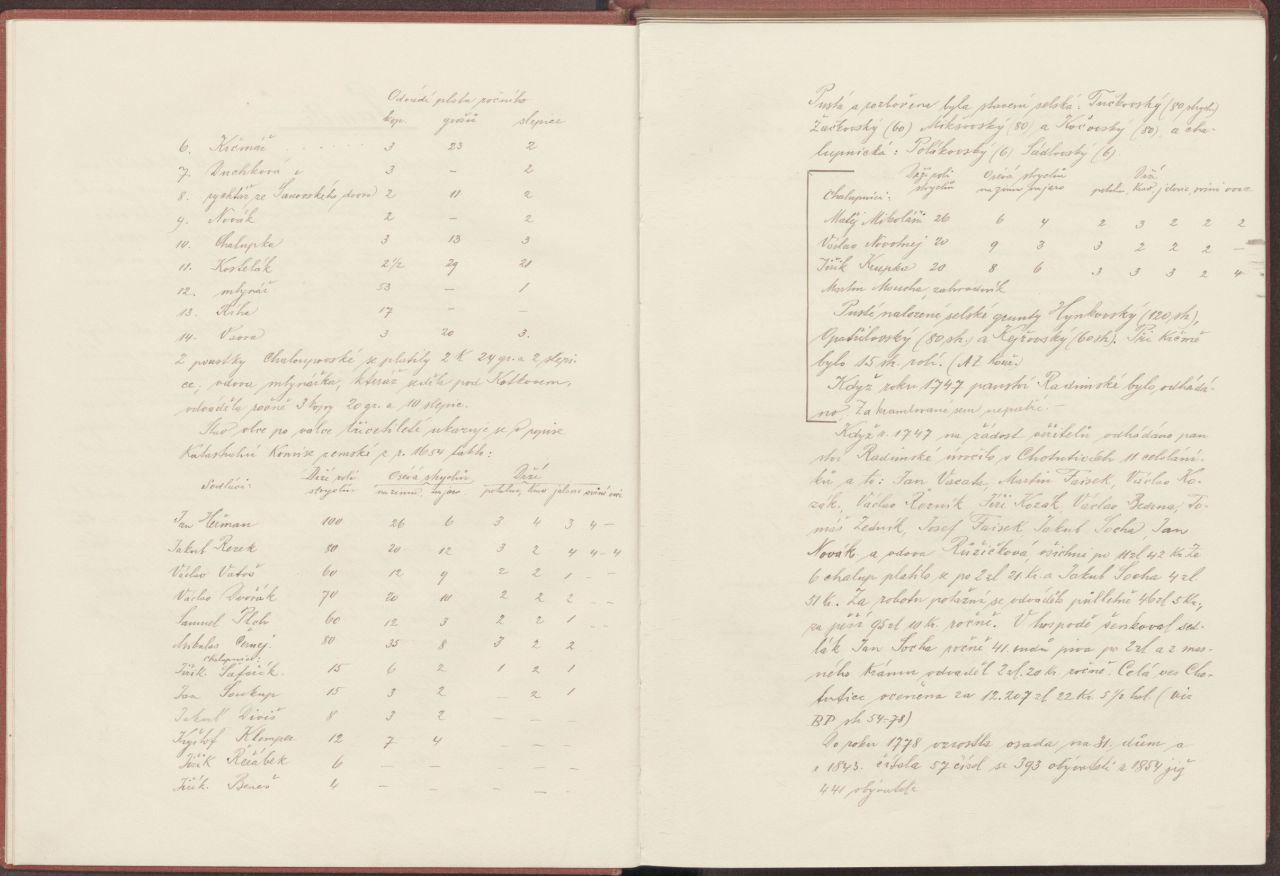 Odvádí platu ročního
kop. grošů slepice
6. Krčmář 3 23 2
7. Duchková 3 – 2
8. rychtář ze Sanovského dvora 2 11 2
9. Novák 2 – 2
10. Chalupka 3 13 3
11. Kostelák 2½ 29 21
12. mlynář 53 – 1
13. Kuba 17 – –
14. Vávra 3 20 3.
2 poustky Chaloupovské se platily 2 K 24 gr. a 2 slepi-
ce; vdova mlynářka, kteráž seděla pod Kotkovem,
odváděla ročně 3 kopy 20 gr. a 10 slepic.
Stav obce po válce třicetileté ukazuje se z popisu
Katastrální Komise zemské z r. 1654 takto:
Sedláci: Drží rolí strychů Osévá strychů na zimu, na jaro Drží potahu, krav jalovic svině ovce
Jan Heřman 100 26 6 3 4 3 4 –
Jakub Rezek 80 20 12 3 2 4 4 – 4
Václav Vatoš 60 12 9 2 2 1 – –
Václav Dvořák 70 20 10 2 2 2 – –
Samuel Ptch 60 12 3 2 2 1 –
Mikolas Černej 80 35 8 3 2 2
Chalupníci:
Jiřík Šafařík 15 6 2 1 2 1
Jan Soukup 15 3 2 – 2 1
Jakub Diviš 8 3 2 – – –
Kryštof Klempa 12 7 4 – – –
Jiřík Řeřábek 6 – – – – –
Jiřík Beneš 4 – – – – –
Pustá a rozbořena byla stavení selská: Tučkovský (80 strych)
Žáčkovský (60) Mikšovský (80) a Kočovský (50) a cha-
lupnická: Polákovský (6) Sádlovský (6)
Chalupníci: Drží rolí strychů Osévá strychů na zimu na jaro Drží potahu, krav, jalovic, svině ovce
Matěj Mikoláši 26 6 4 2 3 2 2 2
Václav Novotnej 20 9 3 3 2 2 2 –
Jiřík Krupka 20 8 6 3 3 3 2 4
Martin Moucha, zahradník
Pusté nalezené selské grunty Hynkovský (120 sh),
Opatřilovský (80 sh.) a Kejřovský (60 sh). Při krčmě
bylo 15 sh. rolí. (AZ Kouř.)
Když roku 1747 panství Radimské bylo odhádá-
no, Zakramlované sem nepatří. –
Když r. 1747 na žádost věřitelů odhádáno pan-
ství Radimské úročilo v Chotuticích 11 celoláni-
ků a to: Jan Vacek, Martin Faisek, Václav Ko-
zák, Václav Rozník Jiří Kozak, Václav Bedrna, To-
máš Zedník, Josef Faisek Jakub Socha, Jan
Novák a vdova Růžičková všichni po 11 zl 42 Kr. Ze
6 chalup platilo se po 2 zl 21 Kr. a Jakub Socha 4 zl
31 Kr. Za robotu potažní se odvádělo půlletně 46 zl 5 Kr.,
za pěší 95 zl 10 Kr. ročně. V hospodě šenkoval sed-
lák Jan Socha ročně 41 sudů piva po 2 zl a z mas-
ného krámu odváděl 2 zl. 20 Kr. ročně. Celá ves Cho-
tutice oceněna za 12.207 zl 22 Kr. 5½ hal. (viz
BP sh 54-78)
Do roku 1778 vzrostla osada na 31. dům a
r 1843. čítala 57 čísel se 393 obyvateli r 1854 již
441 obyvatele